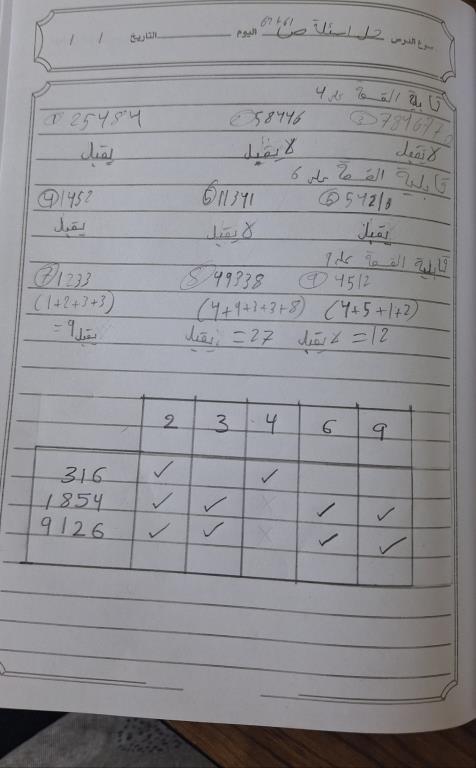 موضوع الدرس حل اسئلة ص اليوم التاريخ / /
قابلية القسمة على 4
① 25484 ② 58446 ③
يقبل لا يقبل لا يقبل
قابلية القسمة على 6
④ 1452 ⑤ 11341 ⑥
يقبل لا يقبل يقبل
قابلية القسمة على 9
⑦ 1233 ⑧ 49338 ⑨ 4512
(1+2+3+3) (4+9+3+3+8) (4+5+1+2)
=9 يقبل =27 يقبل =12 لا يقبل
2 3 4 6 9
316 ✓ ✓
1854 ✓ ✓ × ✓ ✓
9126 ✓ ✓ × ✓ ✓